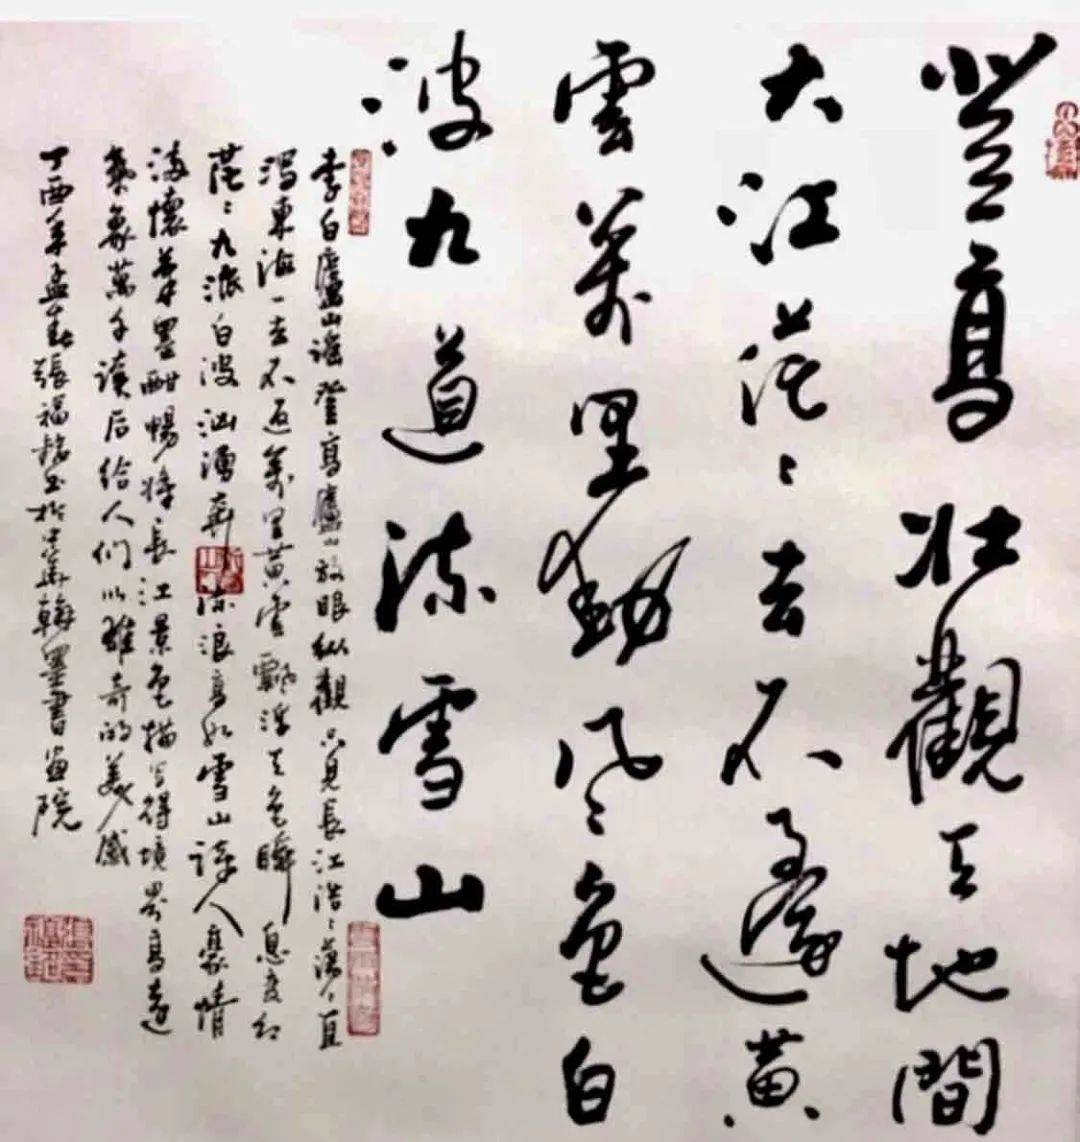 登高壮觀天地間
大江茫〻去不還黄
雲萬里動風色白
波九道流雪山
李白廬山謡登高廬山放眼纵觀只見長江浩〻蕩〻直
瀉東海一去不返萬里黄雲飄浮天色瞬息变幻
茫〻九派白波汹湧奔流浪高如雪山诗人豪情
满懷筆墨酣暢将長江景色描写得境界高遠
氣象萬千讀后给人们以雄奇的美感
丁酉年孟春張福书於中華翰墨書画院